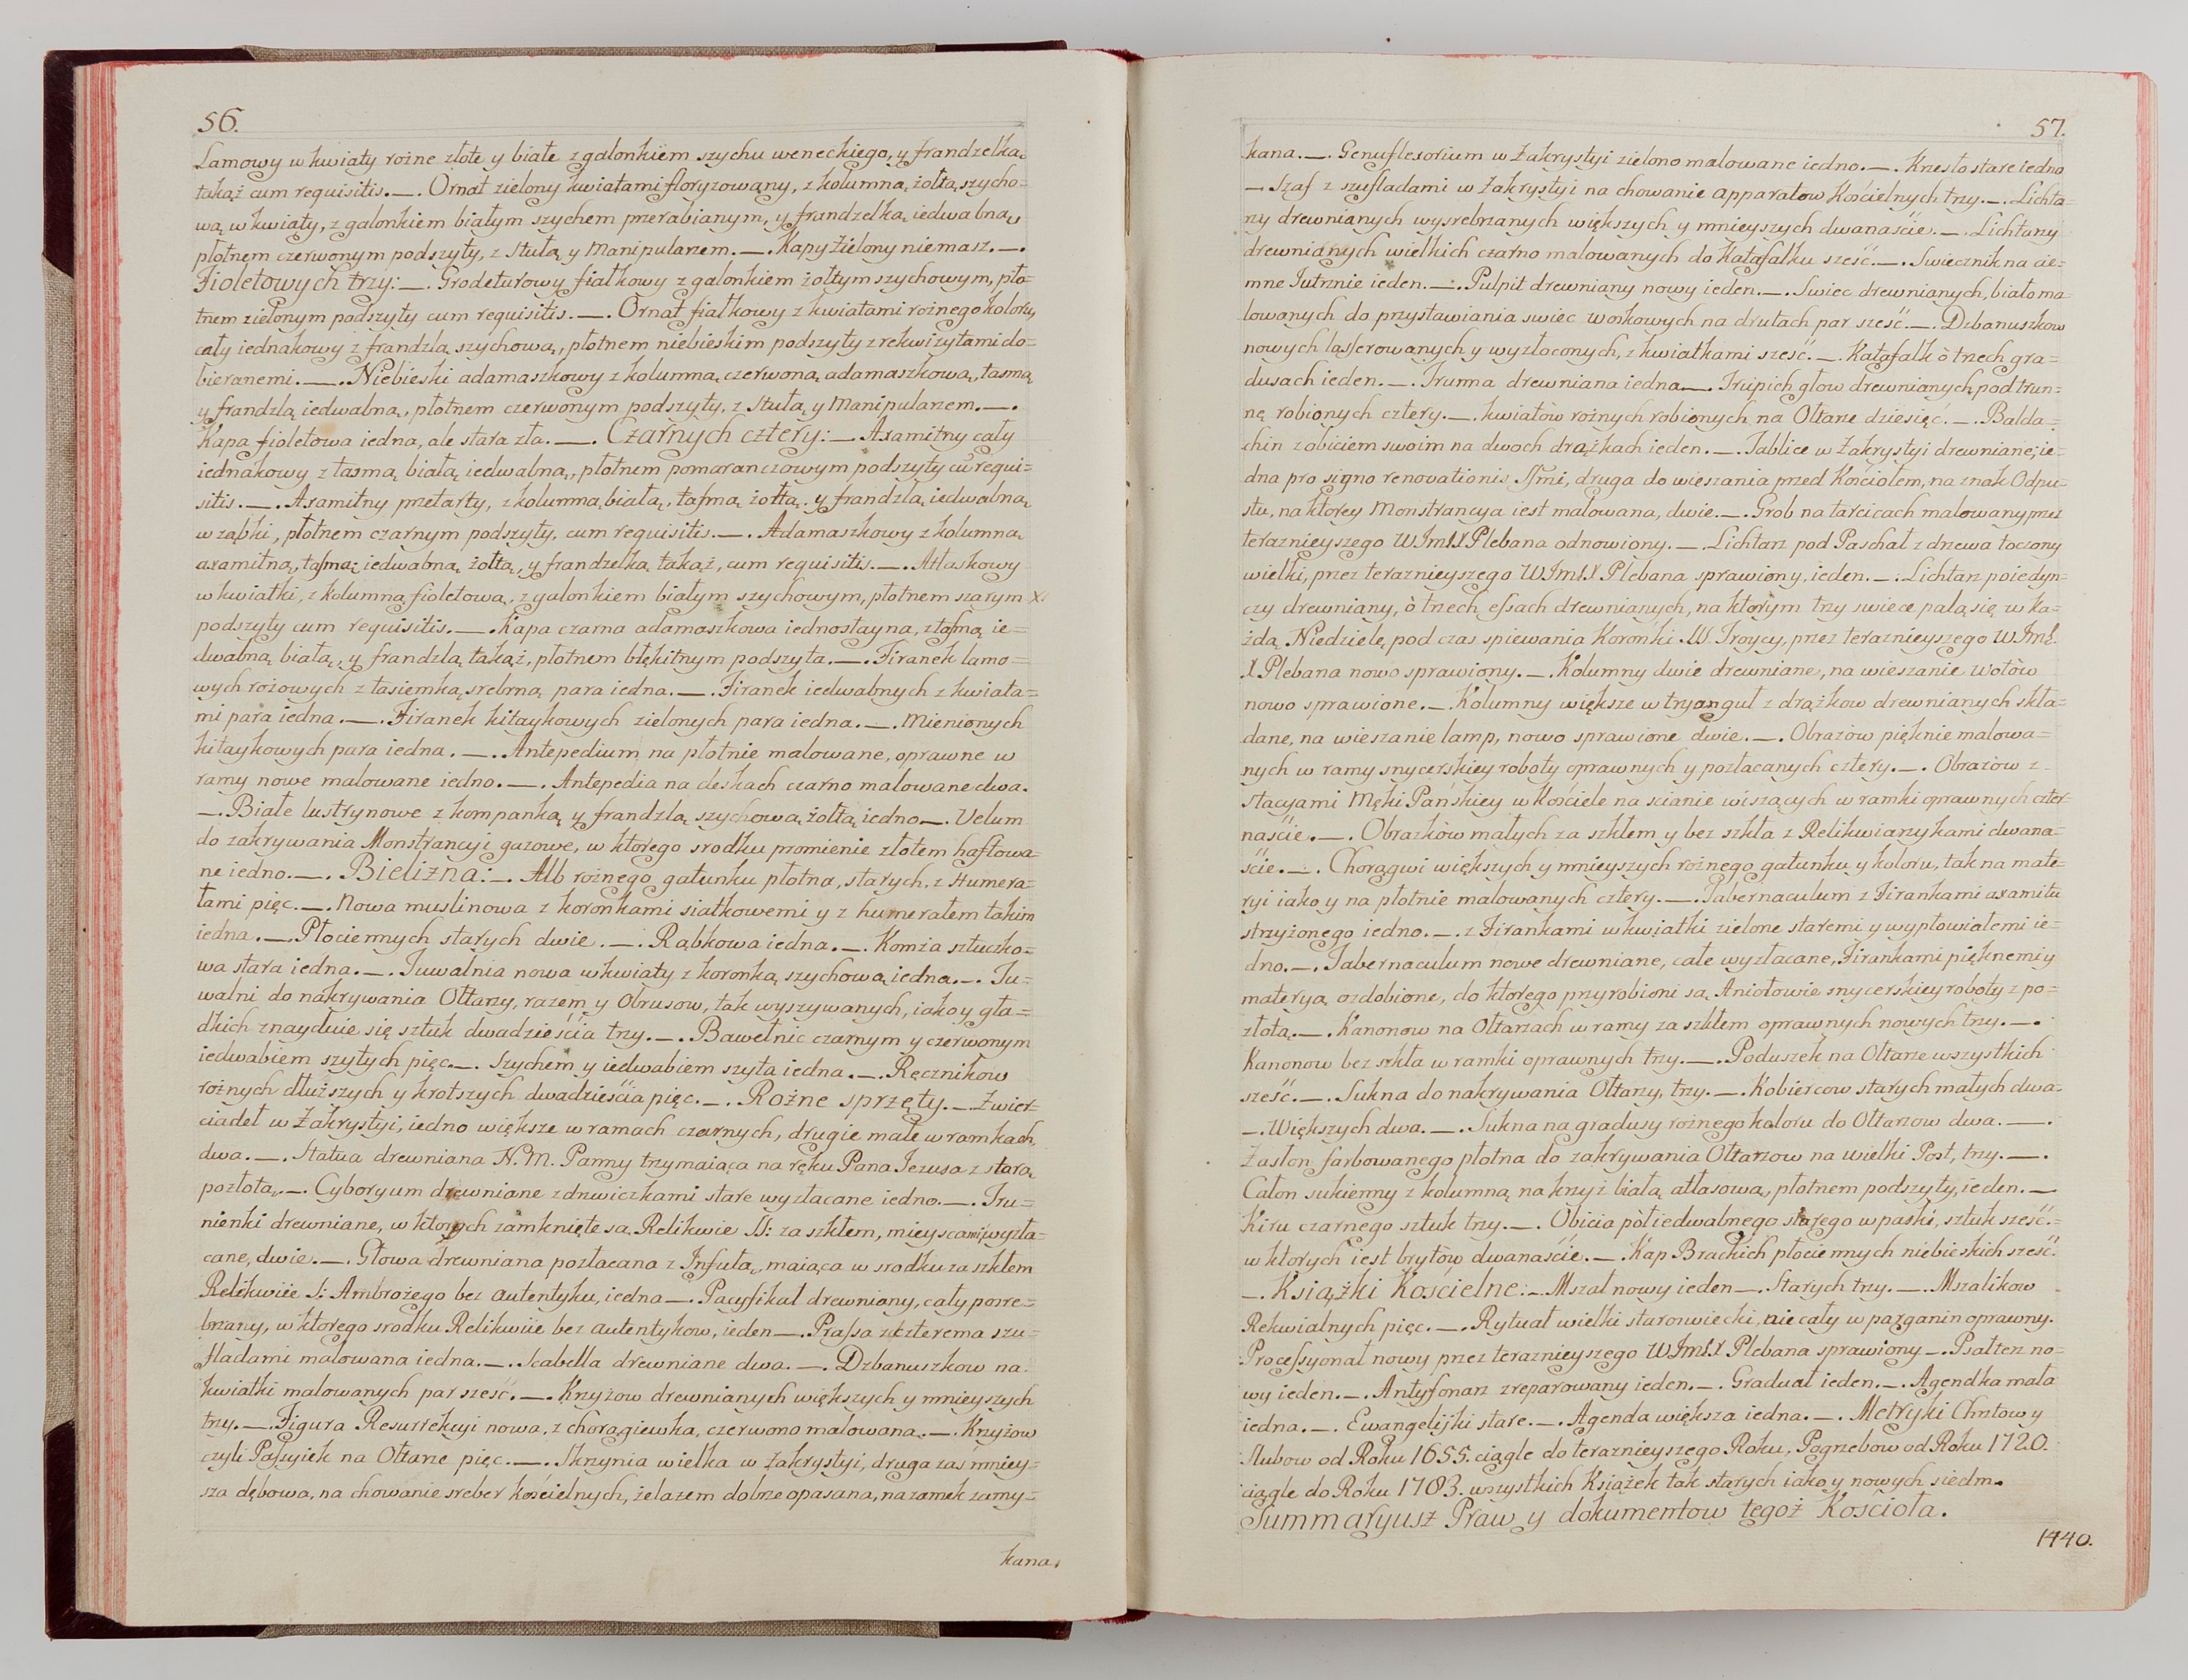 56.
Lamowy w kwiaty rożne złote y białe z galonkiem szychu weneckiego, y frandzelką
takąż cum requisitis.—. Ornat zielony kwiatami floryzowany, z kolumną żołtą szycho=
wą w kwiaty, z galonkiem białym szychem przerabianym, y frandzelką iedwabną,
płotnem czerwonym podszyty, z Stułą y Manipularzem.—. Kapy Zielony niemasz.—.
Fioletowych trzy:—. Grodeturowy fiałkowy z galonkiem żołtym szychowym, pło=
tnem zielonym podszyty cum requisitis.—. Ornat fiałkowy z kwiatami rożnego koloru,
cały iednakowy z frandzlą szychową, płotnem niebieskim podszyty z rekwizytami do=
bieranemi.—. Niebieski adamaszkowy z kolumną czerwoną adamaszkową, tasmą
y frandzlą iedwabną, płotnem czerwonym podszyty, z Stułą y Manipularzem.—.
Kapa fioletowa iedna, ale stara zła.—. Czarnych cztery:— Axamitny cały
iednakowy z tasmą białą iedwalną, płotnem pomaranczowym podszyty cū requi=
sitis.—. Axamitny przetarty, z kolumną białą, tasmą żołtą y frandzlą iedwalną
w ząbki, płotnem czarnym podszyty, cum requisitis.—. Adamaszkowy z kolumną
axamitną, tasmą iedwabną żołtą, y frandzelką takąż, cum requisitis.—. Atłaskowy
w kwiatki, z kolumną fioletową, z galonkiem białym szychowym, płotnem szarym x.
podszyty cum requisitis.—. Kapa czarna adamaszkowa iednostayna, z tasmą ie=
dwalną białą, y frandzlą takąż, płotnem błękitnym podszyta.—. Firanek lamo=
wych rożowych z tasiemką srebrną para iedna.—. Firanek iedwabnych z kwiata=
mi para iedna.—. Firanek kitaykowych zielonych para iedna.—. Mienionych
kitaykowych para iedna.—. Antepedium na płotnie malowane, oprawne w
ramy nowe malowane iedno.—. Antepedia na deskach czarno malowane dwa.
—. Białe lustrynowe z kompanką y frandzlą szychową żołtą iedno—. Velum
do zakrywania Monstrancyi gazowe, w ktorego srodku promienie złotem haftowa=
ne iedno.—. Bielizna:—. Alb rożnego gatunku płotna, starych, z Humera=
łami pięc.—. Nowa muslinowa z koronkami siatkowemi y z humerałem takim
iedna.—. Płociennych starych dwie.—. Rąbkowa iedna.—. Komża sztuczko=
wa stara iedna.—. Tuwalnia nowa w kwiaty z koronką szychową iedna.—. Tu=
walni do nakrywania Ołtarzy, razem y Obrusow, tak wyszywanych, iako y gła=
dkich znayduie się sztuk dwadzieścia trzy.—. Bawełnic czarnym y czerwonym
iedwabiem szytych pięc.—. Szychem y iedwabiem szyta iedna.—. Ręcznikow
rożnych dłuższych y krotszych dwadzieścia pięc.—. Rożne sprzęty.—. Zwier=
ciadeł w Zakrystyi, iedno większe w ramach czarnych, drugie małe w ramkach,
dwa.—. Statua drewniana N. M. Panny trzymaiąca na ręku Pana Jezusa z starą
pozłotą.—. Cyboryum drewniane z drzwiczkami stare wyzłacane iedno.—. Tru=
nienki drewniane, w ktorych zamknięte są Relikwie SS: za szkłem, mieyscami wyzła=
cane, dwie.—. Głowa drewniana pozłacana z Infułą, maiąca w srodku za szkłem
Relikwiie S: Ambrożego bez autentyku, iedna—. Pacyfikał drewniany, cały posre=
brzany, w ktorego srodku Relikwiie bez autentykow, ieden—. Prassa z czterema szu=
fladami malowana iedna.—. Scabella drewniane dwa.—. Dzbanuszkow na
kwiatki malowanych par sześć.—. Krzyżow drewnianych większych y mnieyszych
trzy.—. Figura Resurrekcyi nowa, z chorągiewką, czerwono malowana.—. Krzyżow
czyli Passyiek na Ołtarze pięc.—. Skrzynia wielka w Zakrystyi, druga zaś mniey=
sza dębowa, na chowanie sreber kościelnych, żelazem dobrze opasana, na zamek zamy=
kana.
57.
kana.—. Genuflexorium w Zakrystyi zielono malowane iedno.—. Krzesło stare iedno
—. Szaf z szufladami w Zakrystyi na chowanie apparatow Kościelnych trzy.—. Lichta=
rzy drewnianych wysrebrzanych większych y mnieyszych dwanaście.—. Lichtarzy
drewnianych wielkich czarno malowanych do Katafalku sześć.—. Swiecznik na cie=
mne Jutrznie ieden.—. Pulpit drewniany nowy ieden.—. Swiec drewnianych, biało ma=
lowanych do przystawiania swiec woskowych na drutach par sześć.—. Dzbanuszkow
nowych lasserowanych y wyzłoconych, z kwiatkami sześć.—. Katafalk ò trzech gra=
dusach ieden.—. Trunna drewniana iedna—. Trupich głow drewnianych pod trun=
nę robionych cztery.—. Kwiatòw rożnych robionych na Ołtarze dziesięć.—. Balda=
chin z obiciem swoim na dwoch drążkach ieden.—. Tablice w Zakrystyi drewniane, ie=
dna pro signo renovationis SSmi, druga do wieszania przed Kościołem, na znak Odpu=
stu, na ktorey Monstrancya iest malowana, dwie.—. Grob na tarcicach malowany przez
teraznieyszego WJmX Plebana odnowiony.—. Lichtarz pod Paschał z drzewa toczony
wielki, przez teraznieyszego WJmX Plebana sprawiony, ieden.—. Lichtarz poiedyn=
czy drewniany, ò trzech essach drewnianych, na ktorym trzy swiece palą się w ka=
żdą Niedzielę, pod czas spiewania Koronki SS Troycy, przez teraznieyszego WJm
X Plebana nowo sprawiony.—. Kolumny dwie drewniane, na wieszanie Wotòw
nowo sprawione.—. Kolumny większe w tryanguł z drążkow drewnianych skła=
dane, na wieszanie lamp, nowo sprawione dwie.—. Obrazòw pięknie malowa=
nych w ramy snycerskiey roboty oprawnych y pozłacanych cztery.—. Obrazòw z
stacyami Męki Pańskiey w Kościele na scianie wiszących w ramki oprawnych czter=
naście.—. Obrazkòw małych za szkłem y bez szkła z Relikwiarzykami dwana=
ście.—. Chorągwi większych y mnieyszych rożnego gatunku y koloru, tak na mate=
ryi iako y na płotnie malowanych cztery.—. Tabernaculum z Firankami axamitu
strzyżonego iedno.—. z Firankami w kwiatki zielone staremi y wypłowiałemi ie=
dno.—. Tabernaculum nowe drewniane, całe wyzłacane, Firankami pięknemi y
materyą ozdobione, do ktorego przyrobioni są Aniołowie snycerskiey roboty z po=
złotą.—. Kanonow na Ołtarzach w ramy za szkłem oprawnych nowych trzy.—.
Kanonow bez szkła w ramki oprawnych trzy.—. Poduszek na Ołtarze wszystkich
sześć.—. Sukna do nakrywania Ołtarzy, trzy.—. Kobiercow starych małych dwa.
—. Większych dwa.—. Sukna na gradusy rożnego koloru do Ołtarzow dwa.—.
Zasłon farbowanego płotna do zakrywania Ołtarzow na wielki Post, trzy.—.
Całon sukienny z kolumną na krzyż białą atłasową, płotnem podszyty, ieden.—
Kiru czarnego sztuk trzy.—. Obicia pòłiedwalnego starego w paski, sztuk sześć.=
w ktorych iest brytòw dwanaście.—. Kap Brackich płociennych niebieskich sześć.
—. Książki Kościelne:—. Mszał nowy ieden—. Starych trzy.—. Mszalikow
Rekwialnych pięc.—. Rytuał wielki staroswiecki, nie cały w parganin oprawny.
Processyonał nowy przez teraznieyszego WJmX Plebana sprawiony—. Psałterz no=
wy ieden.—. Antyfonarz zreparowany ieden.—. Graduał ieden.—. Agendka mała
iedna.—. Ewangeliyki stare.—. Agenda większa iedna.—. Metryki Chrztow y
slubow od Roku 1655. ciągle do teraznieyszego Roku, Pogrzebow od Roku 1720.
ciągle do Roku 1783. wszystkich Książek tak starych iako y nowych siedm.
Summaryusz Praw y dokumentow tegoż Kościoła.
1440.